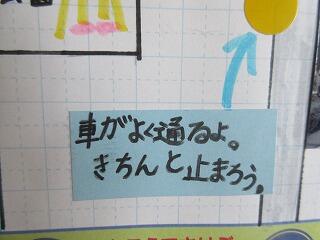 車がよく通るよ。
きちんと止まろう。